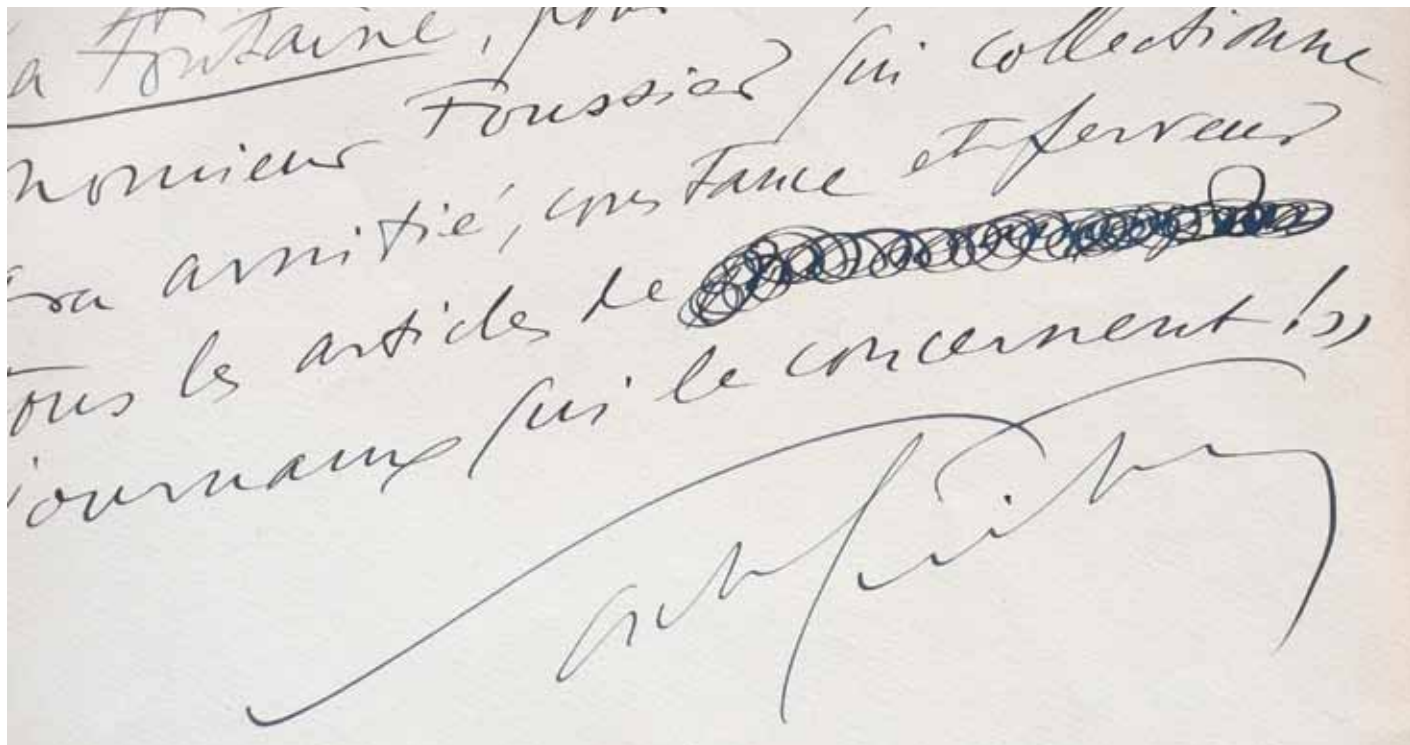 a Fontaine, pour
monsieur Foussier qui collectionne
sa amitié, constance et ferveur
tous les articles de
journaux qui le concernent !»
Sacha Guitry